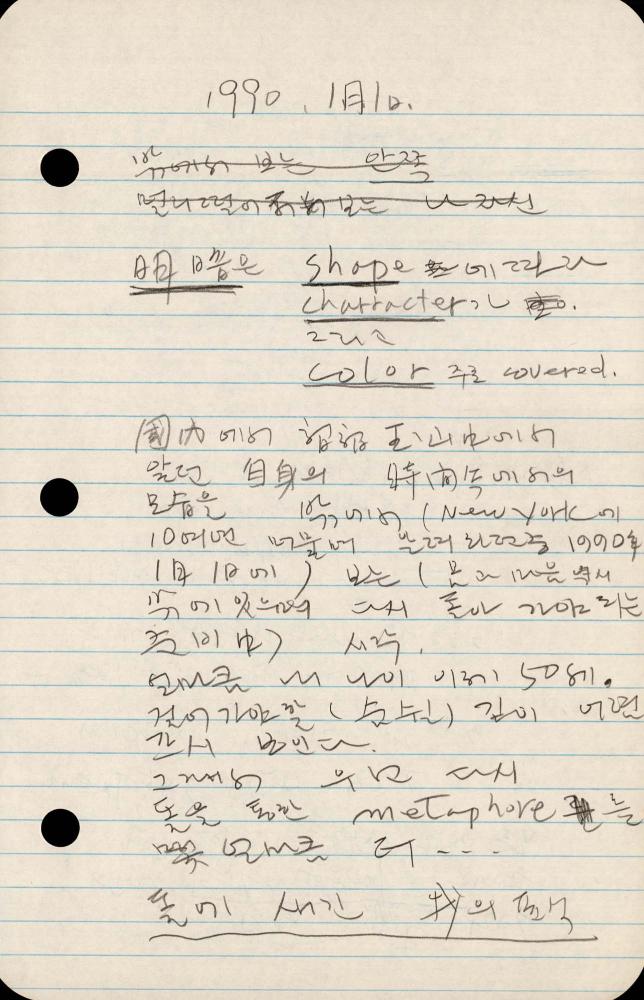 1990. 1月1日.
밖에서 보는 안쪽
멀리 떨어져서 보는 나 자신
明暗은 shape 에 따라
character가
그리고
color 주로 covered.
國內에서
알던 自身의 時間속에서의
모습을 밖에서 (New York에
10여년 머물며 1990年
1月 1日에) 보는 (몸과 마음 역시
밖에 있으며 다시 돌아 가야 하는
준비中) 시각.
얼마큼 내 나이 이제 50세.
걸어가야할 (숨쉴) 길이 어렴
보인다.
그래서 우선 다시
돌을 통한 metaphore 를
얼마큼 더 - - -
돌에 새긴 我의